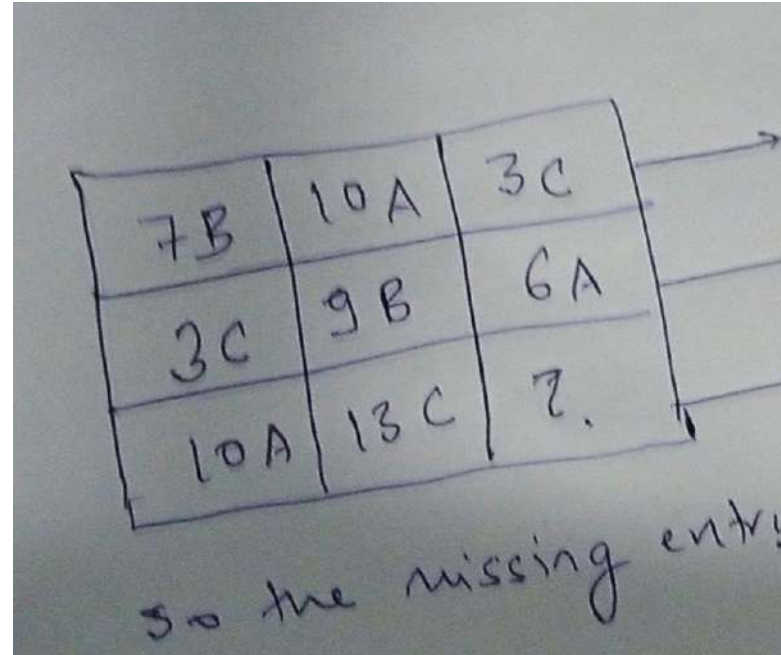 7B 10A 3C
3C 9B 6A
10A 13C ?.
so the missing entry